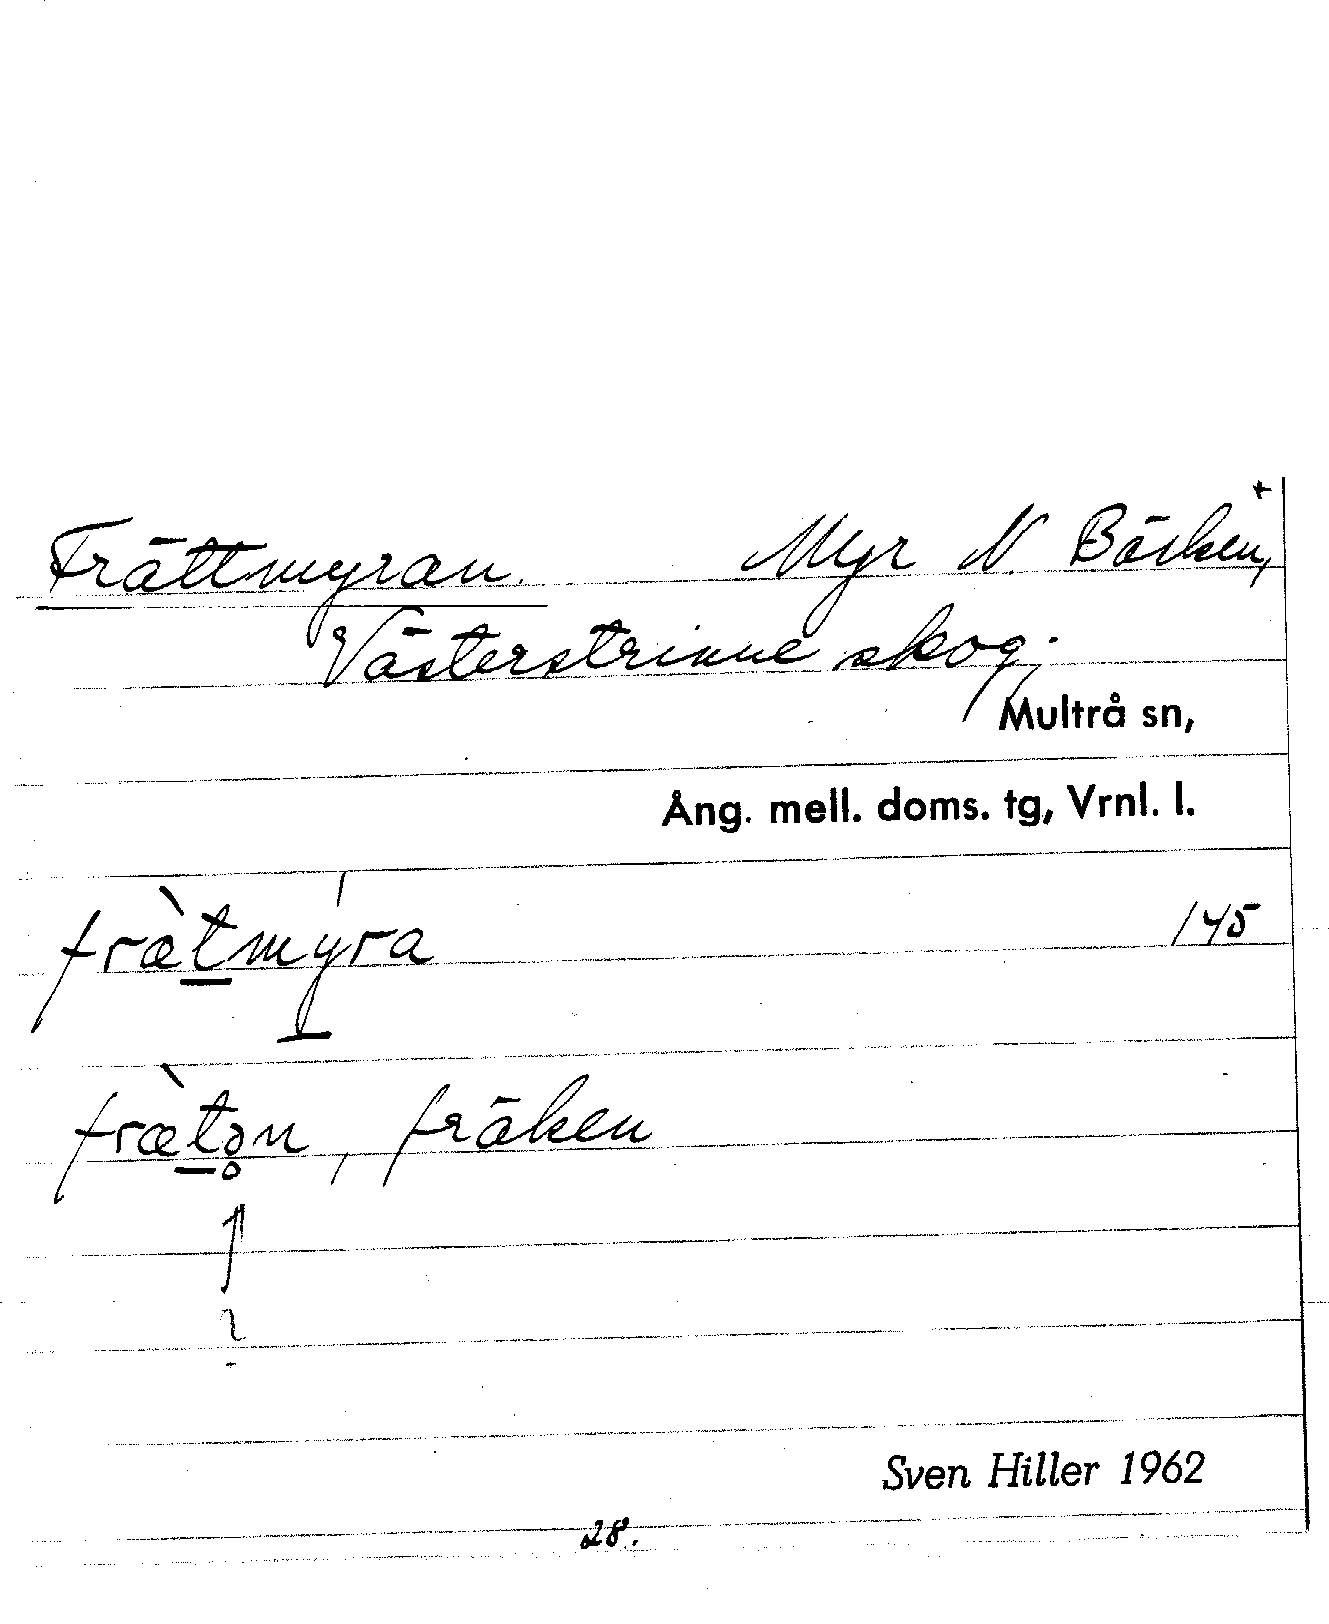 Frättmyran. Myr N. Bäsken,
Västerstrinne skog.
Multrå sn,
Ång. mell. doms. tg, Vrnl. l.
fræ̀tmýra 145
fræ̀tən, fräken
?
Sven Hiller 1962
28.